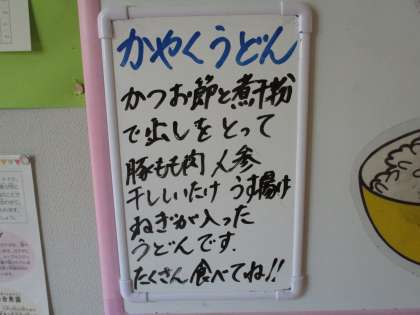 かやくうどん
かつお節と煮干粉
で出しをとって
豚もも肉 人参
干ししいたけ うす揚げ
ねぎが入った
うどんです.
たくさん食べてね!!